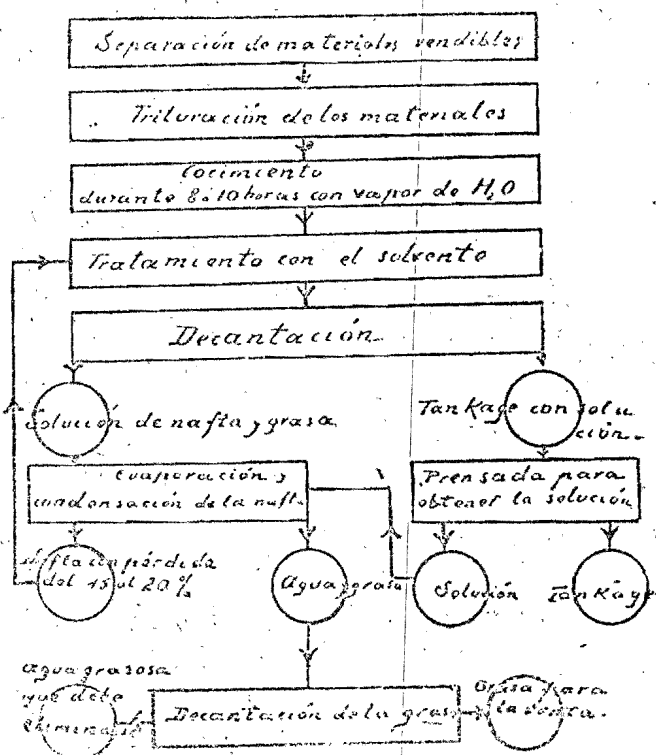 Separación de materiales vendibles
Trituración de los materiales
Cocimiento
durante 8 a 10 horas con vapor de H₂O
Tratamiento con el solvento
Decantación
Solución de nafta y grasa
Tankage con solu
ción.
Evaporación y
condensación de la naft.
Prensada para
obtener la solución
Nafta con pérdida
del 15 al 20 %
Agua grasa
Solución
Tankage
Agua grasosa
que debe
Decantación de la grasa
Grasa para
la venta.